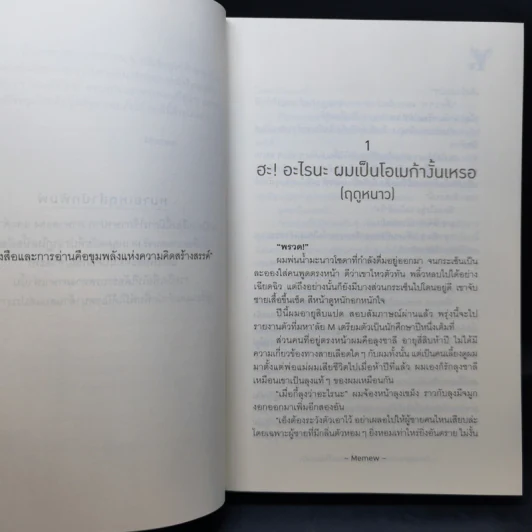 งสือและการอ่านคือขุมพลังแห่งความคิดสร้างสรรค์"
1
ฮะ! อะไรนะ ผมเป็นโอเมก้างั้นเหรอ
(ฤดูหนาว)
"พรวด!"
ผมพ่นน้ำมะนาวโซดาที่กำลังดื่มอยู่ออกมา จนกระเซ็นเป็น
ละอองใส่คนพูดตรงหน้า ดีว่าเขาไหวตัวทัน พลิ้วหลบไปได้อย่าง
เฉียดฉิว แต่ถึงอย่างนั้นก็ยังมีบางส่วนกระเซ็นไปโดนอยู่ดี เขาจับ
ชายเสื้อขึ้นเช็ด สีหน้าดูหนักอกหนักใจ
ปีนี้ผมอายุสิบแปด สอบสัมภาษณ์ผ่านแล้ว พรุ่งนี้จะไป
รายงานตัวที่มหาลัย M เตรียมตัวเป็นนักศึกษาปีหนึ่งเต็มที่
ส่วนคนที่อยู่ตรงหน้าผมคือลุงชาลี อายุสี่สิบห้าปี ไม่ได้มี
ความเกี่ยวข้องทางสายเลือดใดๆ กับผมทั้งนั้น แต่เป็นคนเลี้ยงดูผม
มาตั้งแต่พ่อแม่ผมเสียชีวิตไปเมื่อห้าปีที่แล้ว ผมเองก็รักลุงชาลี
เหมือนเขาเป็นลุงแท้ๆ ของผมเหมือนกัน
"เมื่อกี้ลุงว่าอะไรนะ" ผมจ้องหน้าลุงเขม็ง ราวกับลุงมีจมูก
งอกออกมาเพิ่มอีกสองอัน
"เอ็งต้องระวังตัวเอาไว้ อย่าเผลอไปให้ผู้ชายคนไหนเสียบล่ะ
โดยเฉพาะผู้ชายที่มีกลิ่นตัวหอมๆ ยิ่งหอมเท่าไหร่ยิ่งอันตราย ไม่งั้น
– Memew –